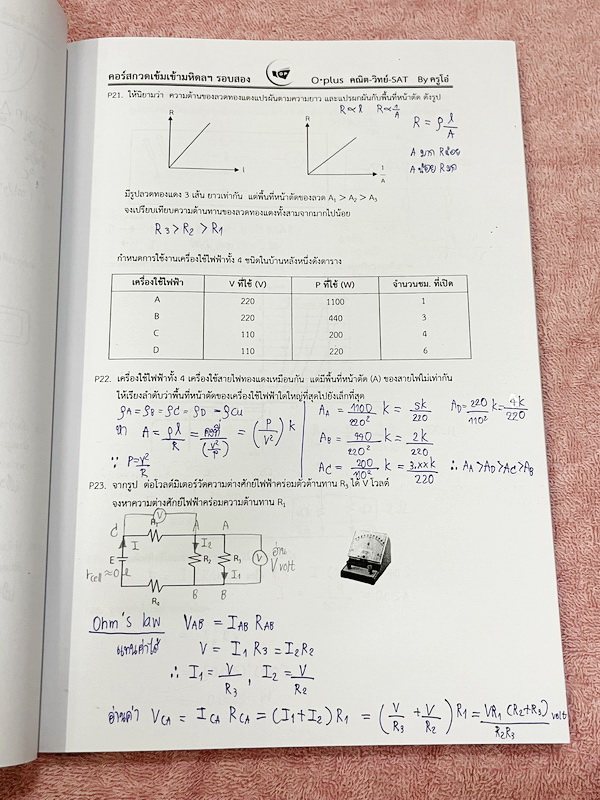 คอร์สกวดเข้มเข้ามหิดลฯ รอบสอง O•plus คณิต-วิทย์-SAT By ครูโอ๋
P21. ให้นิยามว่า ความต้านของลวดทองแดงแปรผันตามความยาว และแปรผกผันกับพื้นที่หน้าตัด ดังรูป
R ∝ l R ∝ 1/A
R = ρ l/A
A มาก R น้อย
A น้อย R มาก
R l
R 1/A
มีรูปลวดทองแดง 3 เส้น ยาวเท่ากัน แต่พื้นที่หน้าตัดของลวด A₁ > A₂ > A₃
จงเปรียบเทียบความต้านทานของลวดทองแดงทั้งสามจากมากไปน้อย
R3 > R2 > R1
กำหนดการใช้งานเครื่องใช้ไฟฟ้าทั้ง 4 ชนิดในบ้านหลังหนึ่งดังตาราง
เครื่องใช้ไฟฟ้า V ที่ใช้ (V) P ที่ใช้ (W) จำนวนชม. ที่เปิด
A 220 1100 1
B 220 440 3
C 110 200 4
D 110 220 6
P22. เครื่องใช้ไฟฟ้าทั้ง 4 เครื่องใช้สายไฟทองแดงเหมือนกัน แต่มีพื้นที่หน้าตัด (A) ของสายไฟไม่เท่ากัน
ให้เรียงลำดับว่าพื้นที่หน้าตัดของเครื่องใช้ไฟฟ้าใดใหญ่ที่สุดไปยังเล็กที่สุด
ρA = ρB = ρC = ρD = ρCu
หา A = ρl/R = คงที่/(V²/P) = (P/V²) k
∵ P = V²/R
AA = 1100/220² k = 5k/220
AB = 440/220² k = 2k/220
AC = 200/110² k = 3.xxk/220
AD = 220/110² k = 4k/220
∴ AA > AD > AC > AB
P23. จากรูป ต่อโวลต์มิเตอร์วัดความต่างศักย์ไฟฟ้าคร่อมตัวต้านทาน R₃ ได้ V โวลต์
จงหาความต่างศักย์ไฟฟ้าคร่อมความต้านทาน R₁
V
C R₁ A A
I I2 I1
E R₂ R₃ V อ่าน V volt
rcell ≈ 0 Ω
R₄ B B
Ohm's law VAB = IAB RAB
แทนค่าได้ V = I1 R3 = I2 R2
∴ I1 = V/R3 , I2 = V/R2
อ่านค่า VCA = ICA RCA = (I1+I2) R1 = (V/R3 + V/R2) R1 = VR1 (R2+R3)/R2R3 volt